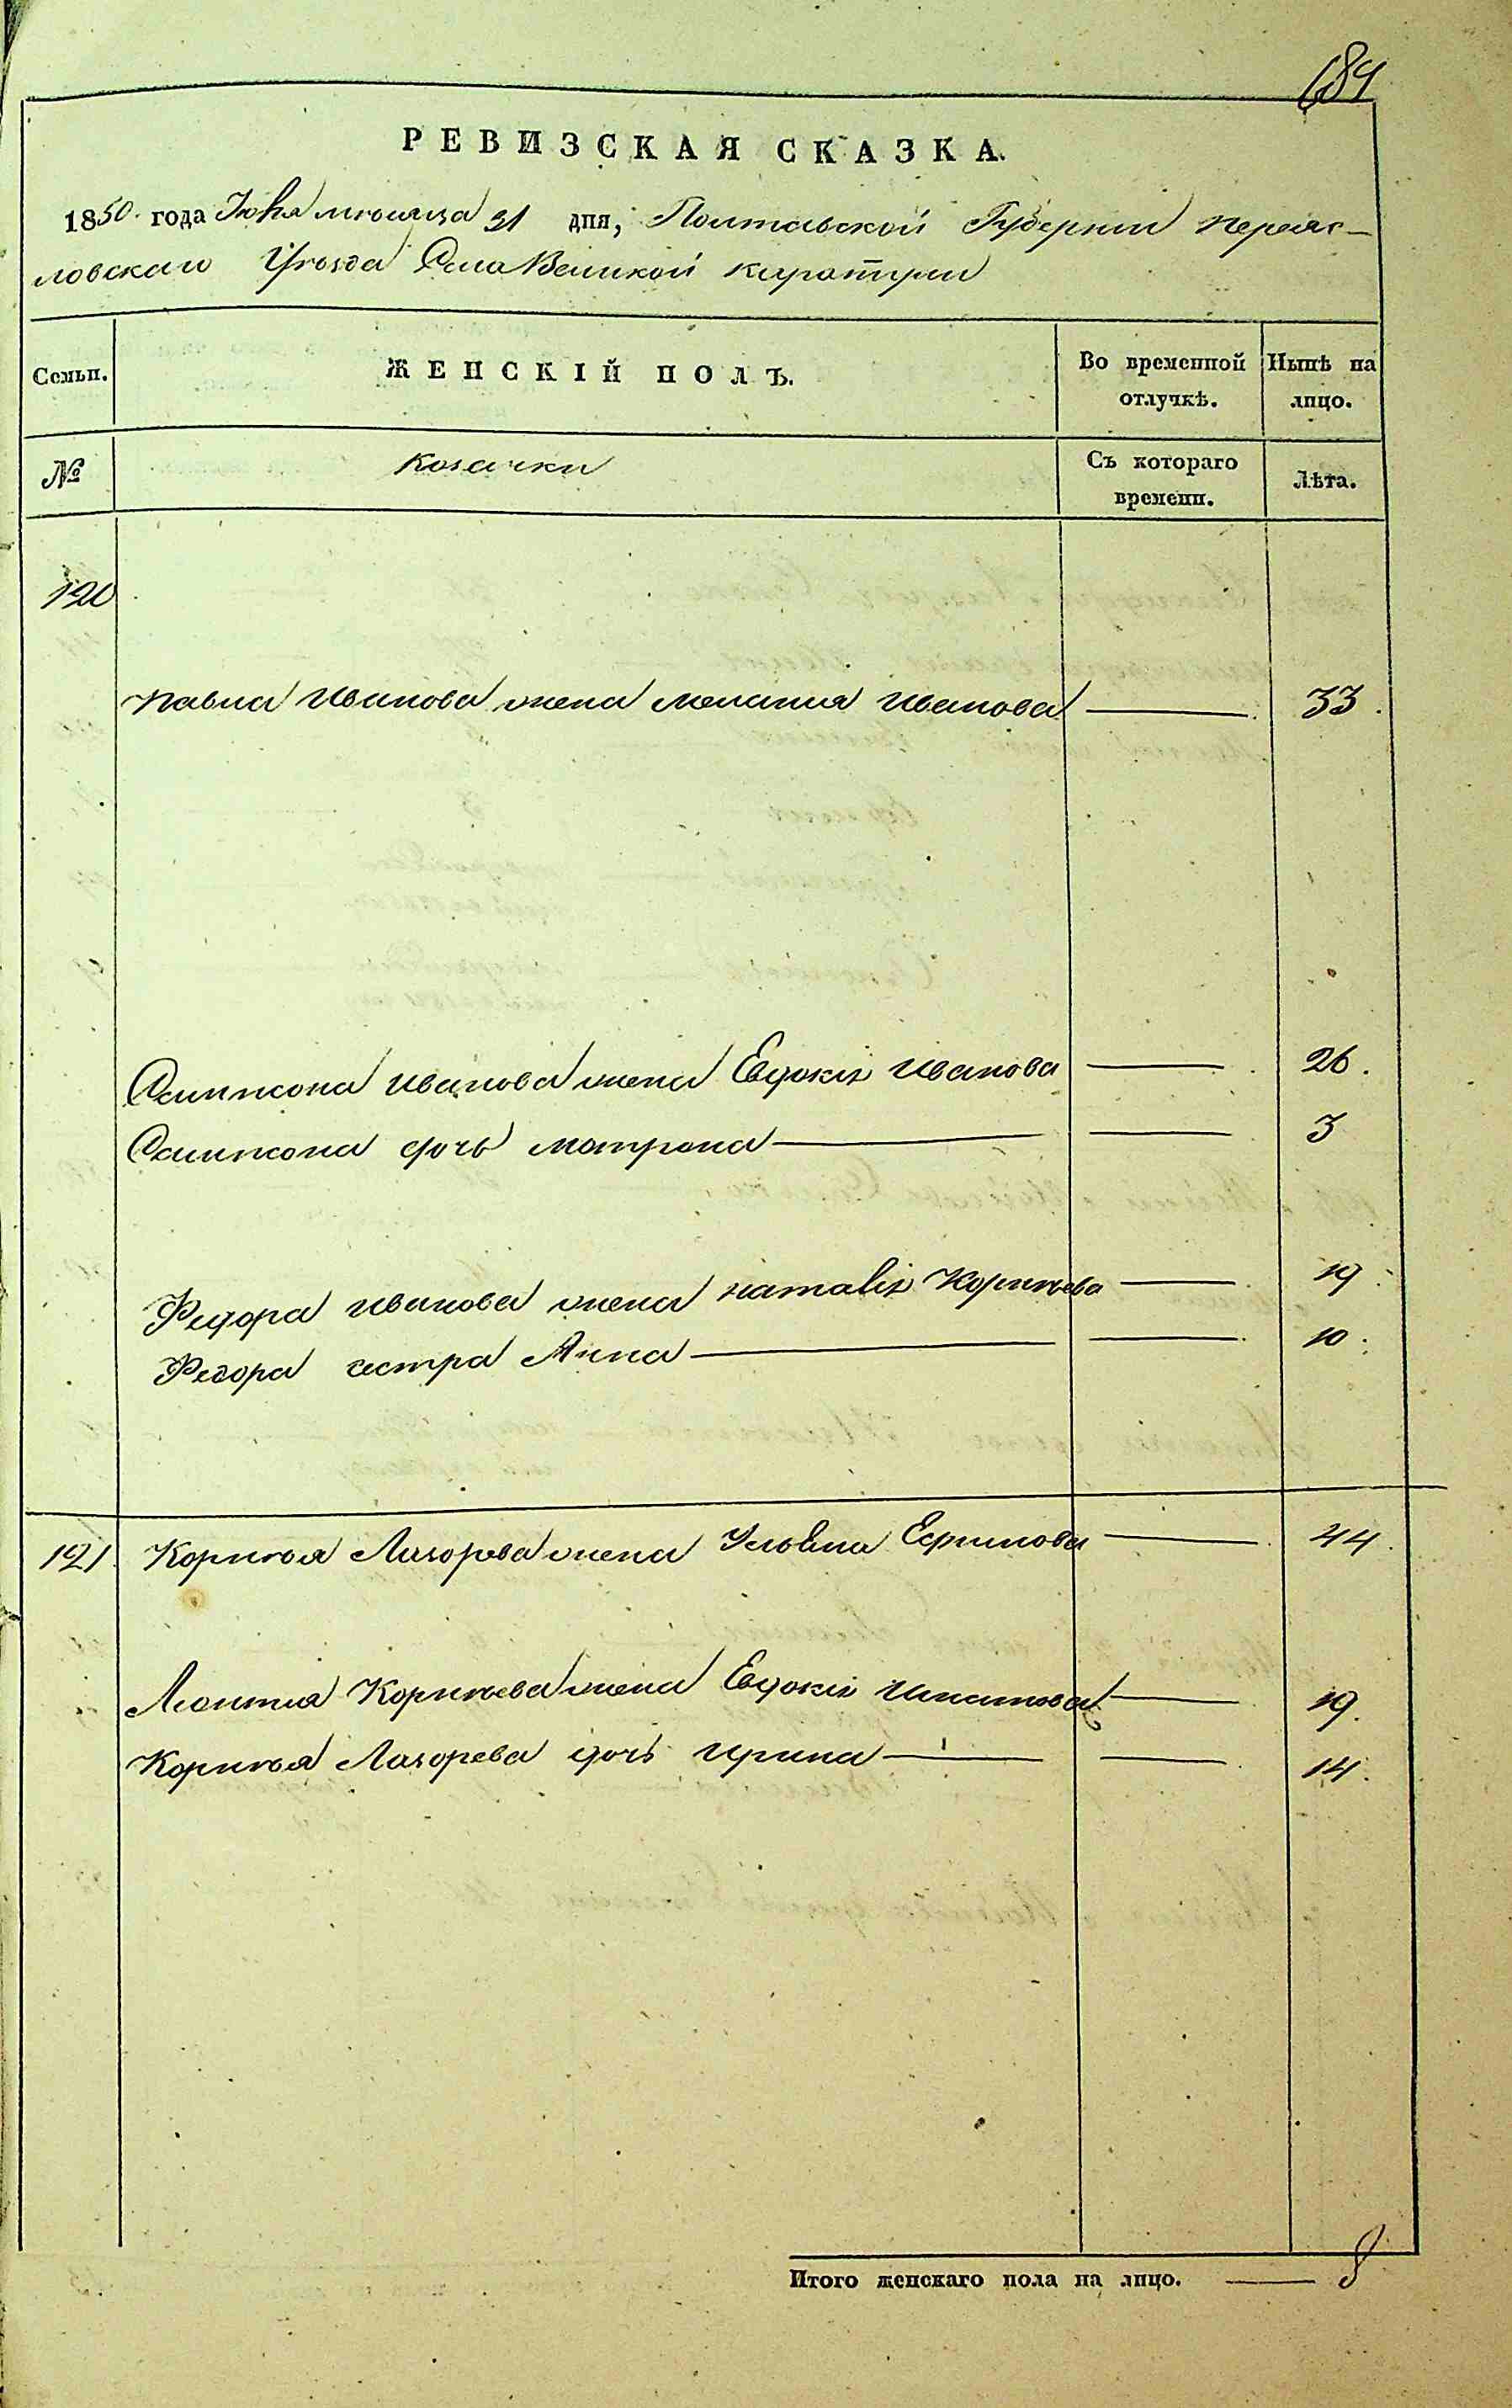 684
РЕВИЗСКАЯ СКАЗКА.
1850. года Июня месяца 31 дня, Полтавской Губернии Переяс-
ловскаго Уезда Села Великой Каратули
Семьи. ЖЕНСКІЙ ПОЛЪ. Во временной отлучкѣ. Нынѣ на лицо.
№ Козачки Съ котораго времени. Лѣта.
120
Павла Иванова жена Мелания Иванова — 33.
Сампсона Иванова жена Евдокія Иванова — 26.
Сампсона дочь Матрона — — 3
Федора Иванова жена Наталія Корниева — 19.
Федора сестра Анна — — 10.
121. Корнија Лазорева жена Ульяна Ефимова — 44.
Леонтия Корниева жена Евдокія Игнатова — 19.
Корния Лазорева дочь Ирина — — 14.
Итого женскаго пола на лицо. — 8